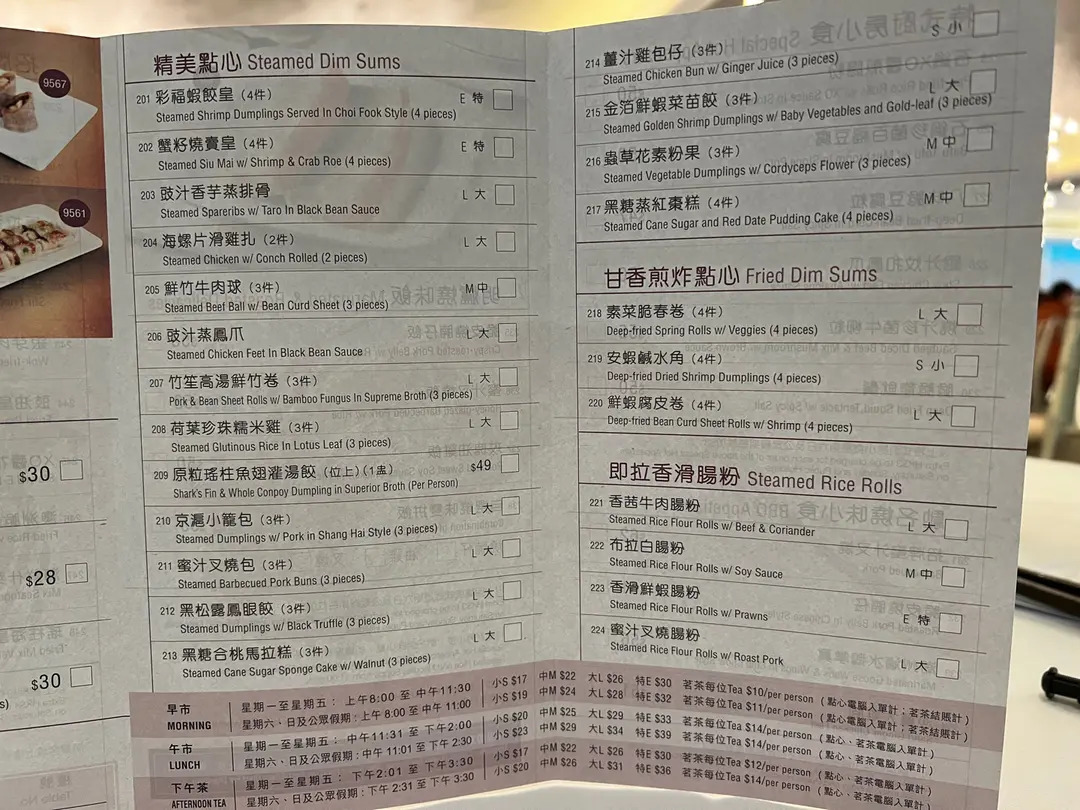 9567
9561
$30
$28
$30
精美點心 Steamed Dim Sums
201 彩福蝦餃皇 (4件) E 特
Steamed Shrimp Dumplings Served In Choi Fook Style (4 pieces)
202 蟹籽燒賣皇 (4件) E 特
Steamed Siu Mai w/ Shrimp & Crab Roe (4 pieces)
203 豉汁香芋蒸排骨 L 大
Steamed Spareribs w/ Taro In Black Bean Sauce
204 海螺片滑雞扎 (2件) L 大
Steamed Chicken w/ Conch Rolled (2 pieces)
205 鮮竹牛肉球 (3件) M 中
Steamed Beef Ball w/ Bean Curd Sheet (3 pieces)
206 豉汁蒸鳳爪 L 大
Steamed Chicken Feet In Black Bean Sauce
207 竹笙高湯鮮竹卷 (3件) L 大
Pork & Bean Sheet Rolls w/ Bamboo Fungus In Supreme Broth (3 pieces)
208 荷葉珍珠糯米雞 (3件) L 大
Steamed Glutinous Rice In Lotus Leaf (3 pieces)
209 原粒瑤柱魚翅灌湯餃 (位上) (1盅) $49
Shark's Fin & Whole Conpoy Dumpling in Superior Broth (Per Person)
210 京滬小籠包 (3件) L 大
Steamed Dumplings w/ Pork in Shang Hai Style (3 pieces)
211 蜜汁叉燒包 (3件) L 大
Steamed Barbecued Pork Buns (3 pieces)
212 黑松露鳳眼餃 (3件) L 大
Steamed Dumplings w/ Black Truffle (3 pieces)
213 黑糖合桃馬拉糕 (3件) L 大
Steamed Cane Sugar Sponge Cake w/ Walnut (3 pieces)
214 薑汁雞包仔 (3件) S 小
Steamed Chicken Bun w/ Ginger Juice (3 pieces)
215 金箔鮮蝦菜苗餃 (3件) L 大
Steamed Golden Shrimp Dumplings w/ Baby Vegetables and Gold-leaf (3 pieces)
216 蟲草花素粉果 (3件) M 中
Steamed Vegetable Dumplings w/ Cordyceps Flower (3 pieces)
217 黑糖蒸紅棗糕 (4件) M 中
Steamed Cane Sugar and Red Date Pudding Cake (4 pieces)
甘香煎炸點心 Fried Dim Sums
218 素菜脆春卷 (4件) L 大
Deep-fried Spring Rolls w/ Veggies (4 pieces)
219 安蝦鹹水角 (4件) S 小
Deep-fried Dried Shrimp Dumplings (4 pieces)
220 鮮蝦腐皮卷 (4件) L 大
Deep-fried Bean Curd Sheet Rolls w/ Shrimp (4 pieces)
即拉香滑腸粉 Steamed Rice Rolls
221 香茜牛肉腸粉 L 大
Steamed Rice Flour Rolls w/ Beef & Coriander
222 布拉白腸粉 M 中
Steamed Rice Flour Rolls w/ Soy Sauce
223 香滑鮮蝦腸粉 E 特
Steamed Rice Flour Rolls w/ Prawns
224 蜜汁叉燒腸粉 L 大
Steamed Rice Flour Rolls w/ Roast Pork
早市 MORNING
星期一至星期五 : 上午8:00 至 中午11:30 小S $17 中M $22 大L $26 特E $30 茗茶每位Tea $10/per person (點心電腦入單計 ; 茗茶結賬計)
星期六、日及公眾假期 : 上午 8:00 至 中午 11:00 小S $19 中M $24 大L $28 特E $32 茗茶每位Tea $11/per person (點心電腦入單計 ; 茗茶結賬計)
午市 LUNCH
星期一至星期五 : 中午11:31 至 下午2:00 小S $20 中M $25 大L $29 特E $33 茗茶每位Tea $14/per person (點心、茗茶電腦入單計)
星期六、日及公眾假期 : 中午 11:01 至 下午 2:30 小S $23 中M $29 大L $34 特E $39 茗茶每位Tea $14/per person (點心、茗茶電腦入單計)
下午茶 AFTERNOON TEA
星期一至星期五 : 下午2:01 至 下午3:30 小S $17 中M $22 大L $26 特E $30 茗茶每位Tea $12/per person (點心、茗茶電腦入單計)
星期六、日及公眾假期 : 下午 2:31 至 下午 3:30 小S $20 中M $26 大L $31 特E $36 茗茶每位Tea $14/per person (點心、茗茶電腦入單計)